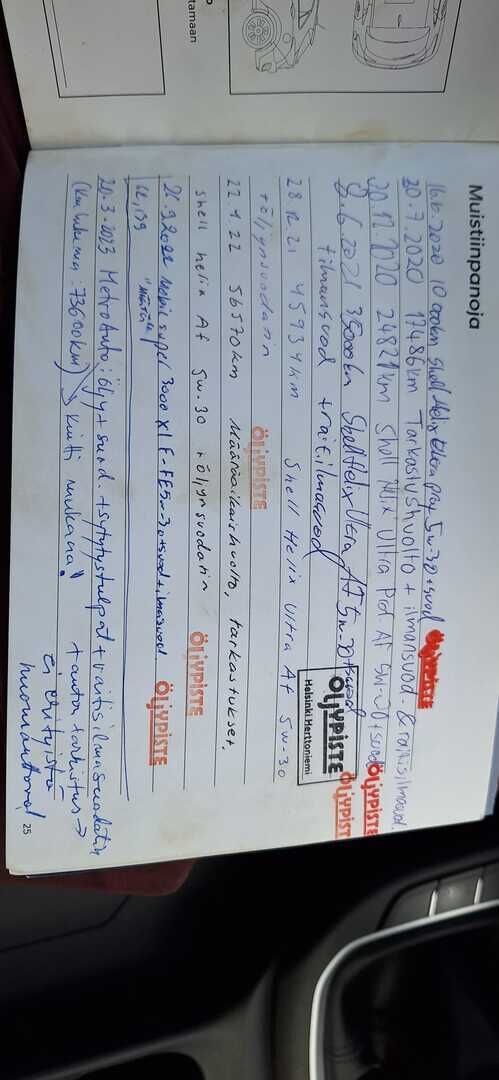 tamaan
Muistiinpanoja
16.6.2020 10 000km Shell Helix 5w-30 + suod ÖLJYPISTE
20.7.2020 17486km Tarkastushuolto + ilmansuod. & raitisilmasuod.
20.12.2020 24821km Shell Helix Ultra Prof. Af 5w-30 + suod ÖLJYPISTE
8.6.2021 35000km Shell Helix Ultra Af 5w-30 + suod ÖLJYPISTE
ilmansuod + raitilmasuod ÖLJYPISTE
Helsinki Herttoniemi
28.12.21 45934km Shell Helix Ultra Af 5w-30
+ öljynsuodatin ÖLJYPISTE
22.4.22 56570km Määräaikaishuolto, tarkastukset,
shell helix Af 5w-30 + öljynsuodatin ÖLJYPISTE
26.9.2022 Mobil super 3000 X1 F-FE 5w-30 + suod + ilmasuod. ÖLJYPISTE
66,139
20.3.2023 MetroAuto: öljy + suod. + sytytystulpat + raitisilmasuodatin
(km lukema: 73600km) → kuitti mukana! + auton tarkastus →
ei erityistä
huomautettavaa
25